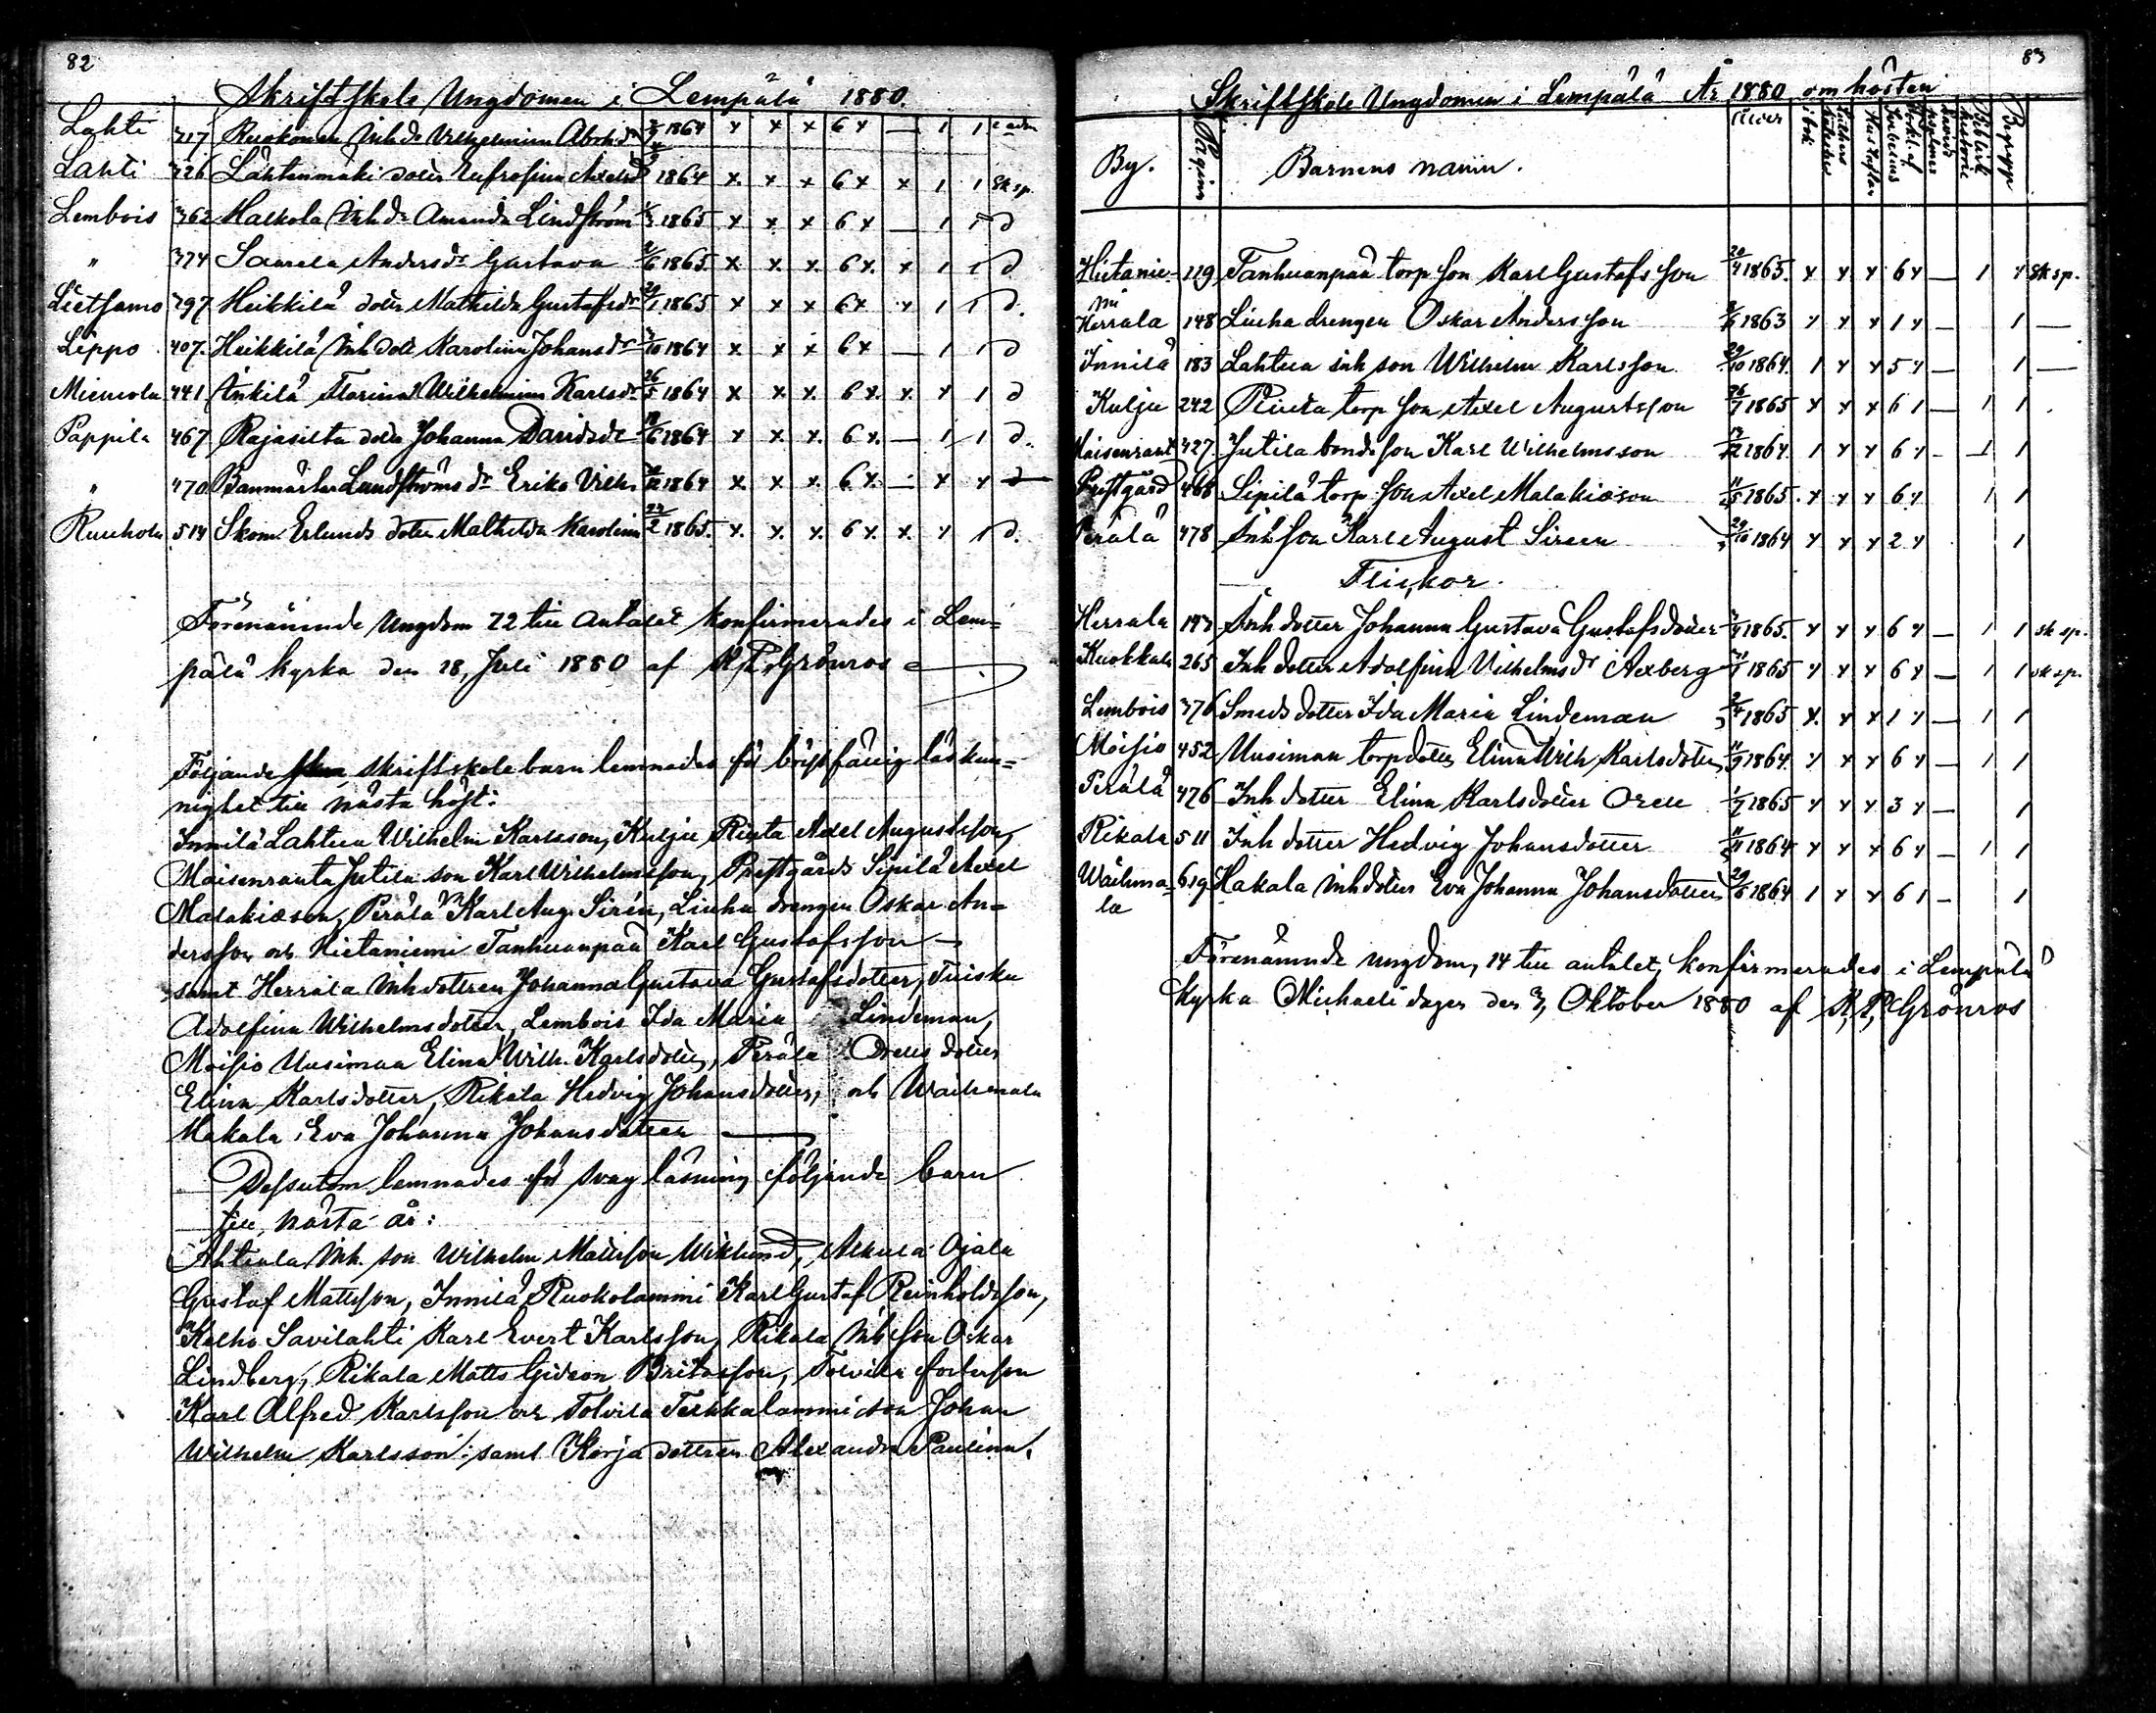 82
Skriftskole Ungdomen i Lempälä 1880.
Lahti 317 Ruokonen Inh dr Vilhelmina Abrah dr 1864 x x x 6 x — 1 1
Lahti 326 Lähtinmäki doter Eufrosina Axelsd 1864 x x x 6 x x 1 1 sk sp.
Lembois 362 Halkola Inh dr Amanda Lindström 1865 x x x 6 x — 1 1 d
" 374 Saurela Andersdr Gustava 1865 x x x 6 x x 1 1 d
Lietsamo 397 Heikkilä doter Mathilda Gustafsdr 1865 x x x 6 x x 1 1 d.
Lippo 407. Heikkilä Inh dott Karolina Johansdr 1864 x x x 6 x — 1 1 d
Mienola 441 Ankilä Starina Wilhelmina Karlsdr 26/5 1864 x x x 6 x x x 1 d
Pappila 467 Rajasilta dotter Johanna Davidsdr 1864 x x x 6 x — 1 1 d.
" 470 Banmästar Lundströms dr Erika Vilh. 1864 x x x 6 x — x x d
Ruuhola 514 Skom. Erlunds doter Mathilda Karolina 22/2 1865. x x x 6 x x x 1 d.
Förenämnde Ungdom 72 till antalet konfirmerades i Lem=
pälä kyrka den 18, Juli 1880 af K, R, Grönros
Följande skriftskolebarn lemnades för bristfällig läskun=
nighet till nästa höst:
Innilä Lahtua Wilhelm Karlsson, Kulju Rinta Axel Augustsson,
Moisenranta Jutila son Karl Wilhelmsson, Prestgårds Sipilä Axel
Malakiason, Perälä Karl Aug. Sirén, Liuha drengen Oskar An=
dersson och Hietaniemi Tanhuanpää Karl Gustafsson —
samt Herrala Inhdottren Johanna Gustava Gustafsdotter,
Adolfina Wilhelmsdotter, Lembois Ida Maria Lindeman,
Moisio Uusimaa Elina Wilh. Karlsdotter, Perälä doter
Elina Karlsdotter, Rikala Hedvig Johansdotter, och Waihmala
Hakala Eva Johanna Johansdotter
Dessutom lemnades för svag läsning följande barn
till nästa år:
Ahtiala Inh. son Wilhelm Mattsson Wiklund, Alkula Ojala
Gustaf Mattsson, Innilä Ruokolammi Karl Gustaf Reinholdsson,
Kelho Savilahti Karl Evert Karlsson, Rikala Inh son Oskar
Lindberg, Rikala Matts Gideon Britasson, Tolvila fosterson
Karl Alfred Karlsson och Tolvila son Johan
Wilhelm Karlsson: samt Korja dottren Alexandra Paulina.
83
Skriftskole Ungdomen i Lempälä År 1880 om hösten
By. Pagina Barnens namn.
Hietanie- 119 Tanhuanpää torp son Karl Gustafsson 1865. x x x 6 x — 1 x sk sp.
mi
Herrala 148 Liuha drengen Oskar Andersson 1863 x x x 1 x — 1 —
Innilä 183 Lahtua inh son Wilhelm Karlsson 29/10 1864. 1 x x 5 x — 1 —
Kulju 242 Rinta torp son Axel Augustsson 1865 x x x 6 1 — 1 1
Moisenrant 427 Jutila bond son Karl Wilhelmsson 1864 1 x x 6 x — 1 1
Prestgård 468 Sipilä torp son Axel Malakiason 11/5 1865. x x x 6 x 1 1
Perälä 478 Inh son Karl August Siren 29/10 1864 x x x 2 x 1
Flickor.
Herrala 143 Inh dotter Johanna Gustava Gustafsdotter 1865. x x x 6 x — 1 1 sk sp.
Kuokkala 265 Inh dotter Adolfina Vilhelmsdr Axberg 1865 x x x 6 x — 1 1 sk sp.
Lembois 376 Smeds dotter Ida Maria Lindeman 1865 x x x 1 x — 1 1
Moisio 452 Uusimaa torp dotter Elina Wilh Karlsdoter 11/9 1864. x x x 6 x — 1 1
Perälä 476 Inh dotter Elina Karlsdotter 1865 x x x 3 x — 1
Rikala 511 Inh dotter Hedvig Johansdotter 11/11 1864 x x x 6 x — 1 1
Waihma- 619 Hakala Inhdotter Eva Johanna Johansdotter 29/6 1864 1 x x 6 1 — 1
la
Förenämnde ungdom, 14 till antalet, konfirmerades i Lempälä
kyrka Michaeli dagen den 3, Oktober 1880 af K, R, Grönros